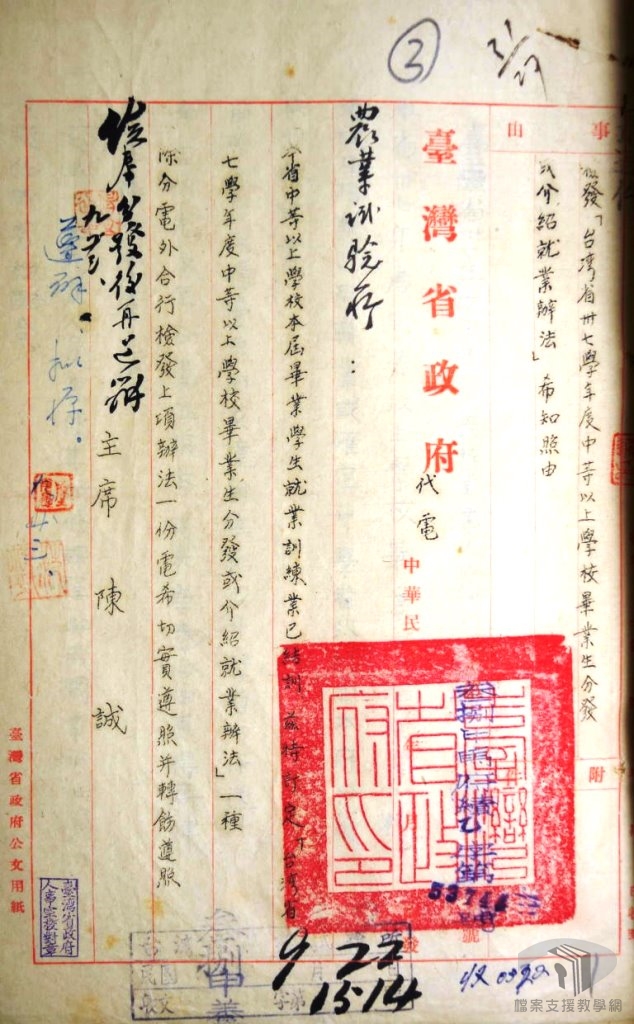 ③
事由
發「台湾省卅七學年度中等以上學校畢業生分發
或介紹就業辦法」希知照由
附
臺灣省政府
代電
中華民
號
農業試驗所：
本省中等以上學校本屆畢業學生就業訓練業已結訓茲特訂定「台湾省
七學年度中等以上學校畢業生分發或介紹就業辦法」一種
除分電外合行檢發上項辦法一份電希切實遵照并轉飭遵照
主席陳誠
俟奉分發後再
九、廿三、
53744
9 22
1514
臺灣省政府
人事室校對章
臺灣省政府公文用紙
檔案支援教學網